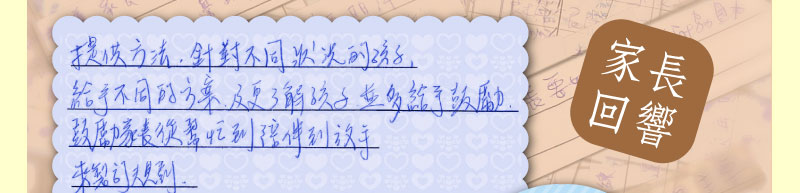 提供方法. 針對不同狀況的孩子,
給予不同的方案. 及更了解孩子並多給予鼓勵.
鼓勵家長從幫忙到陪伴到放手
來製訂規則.
家長
回響